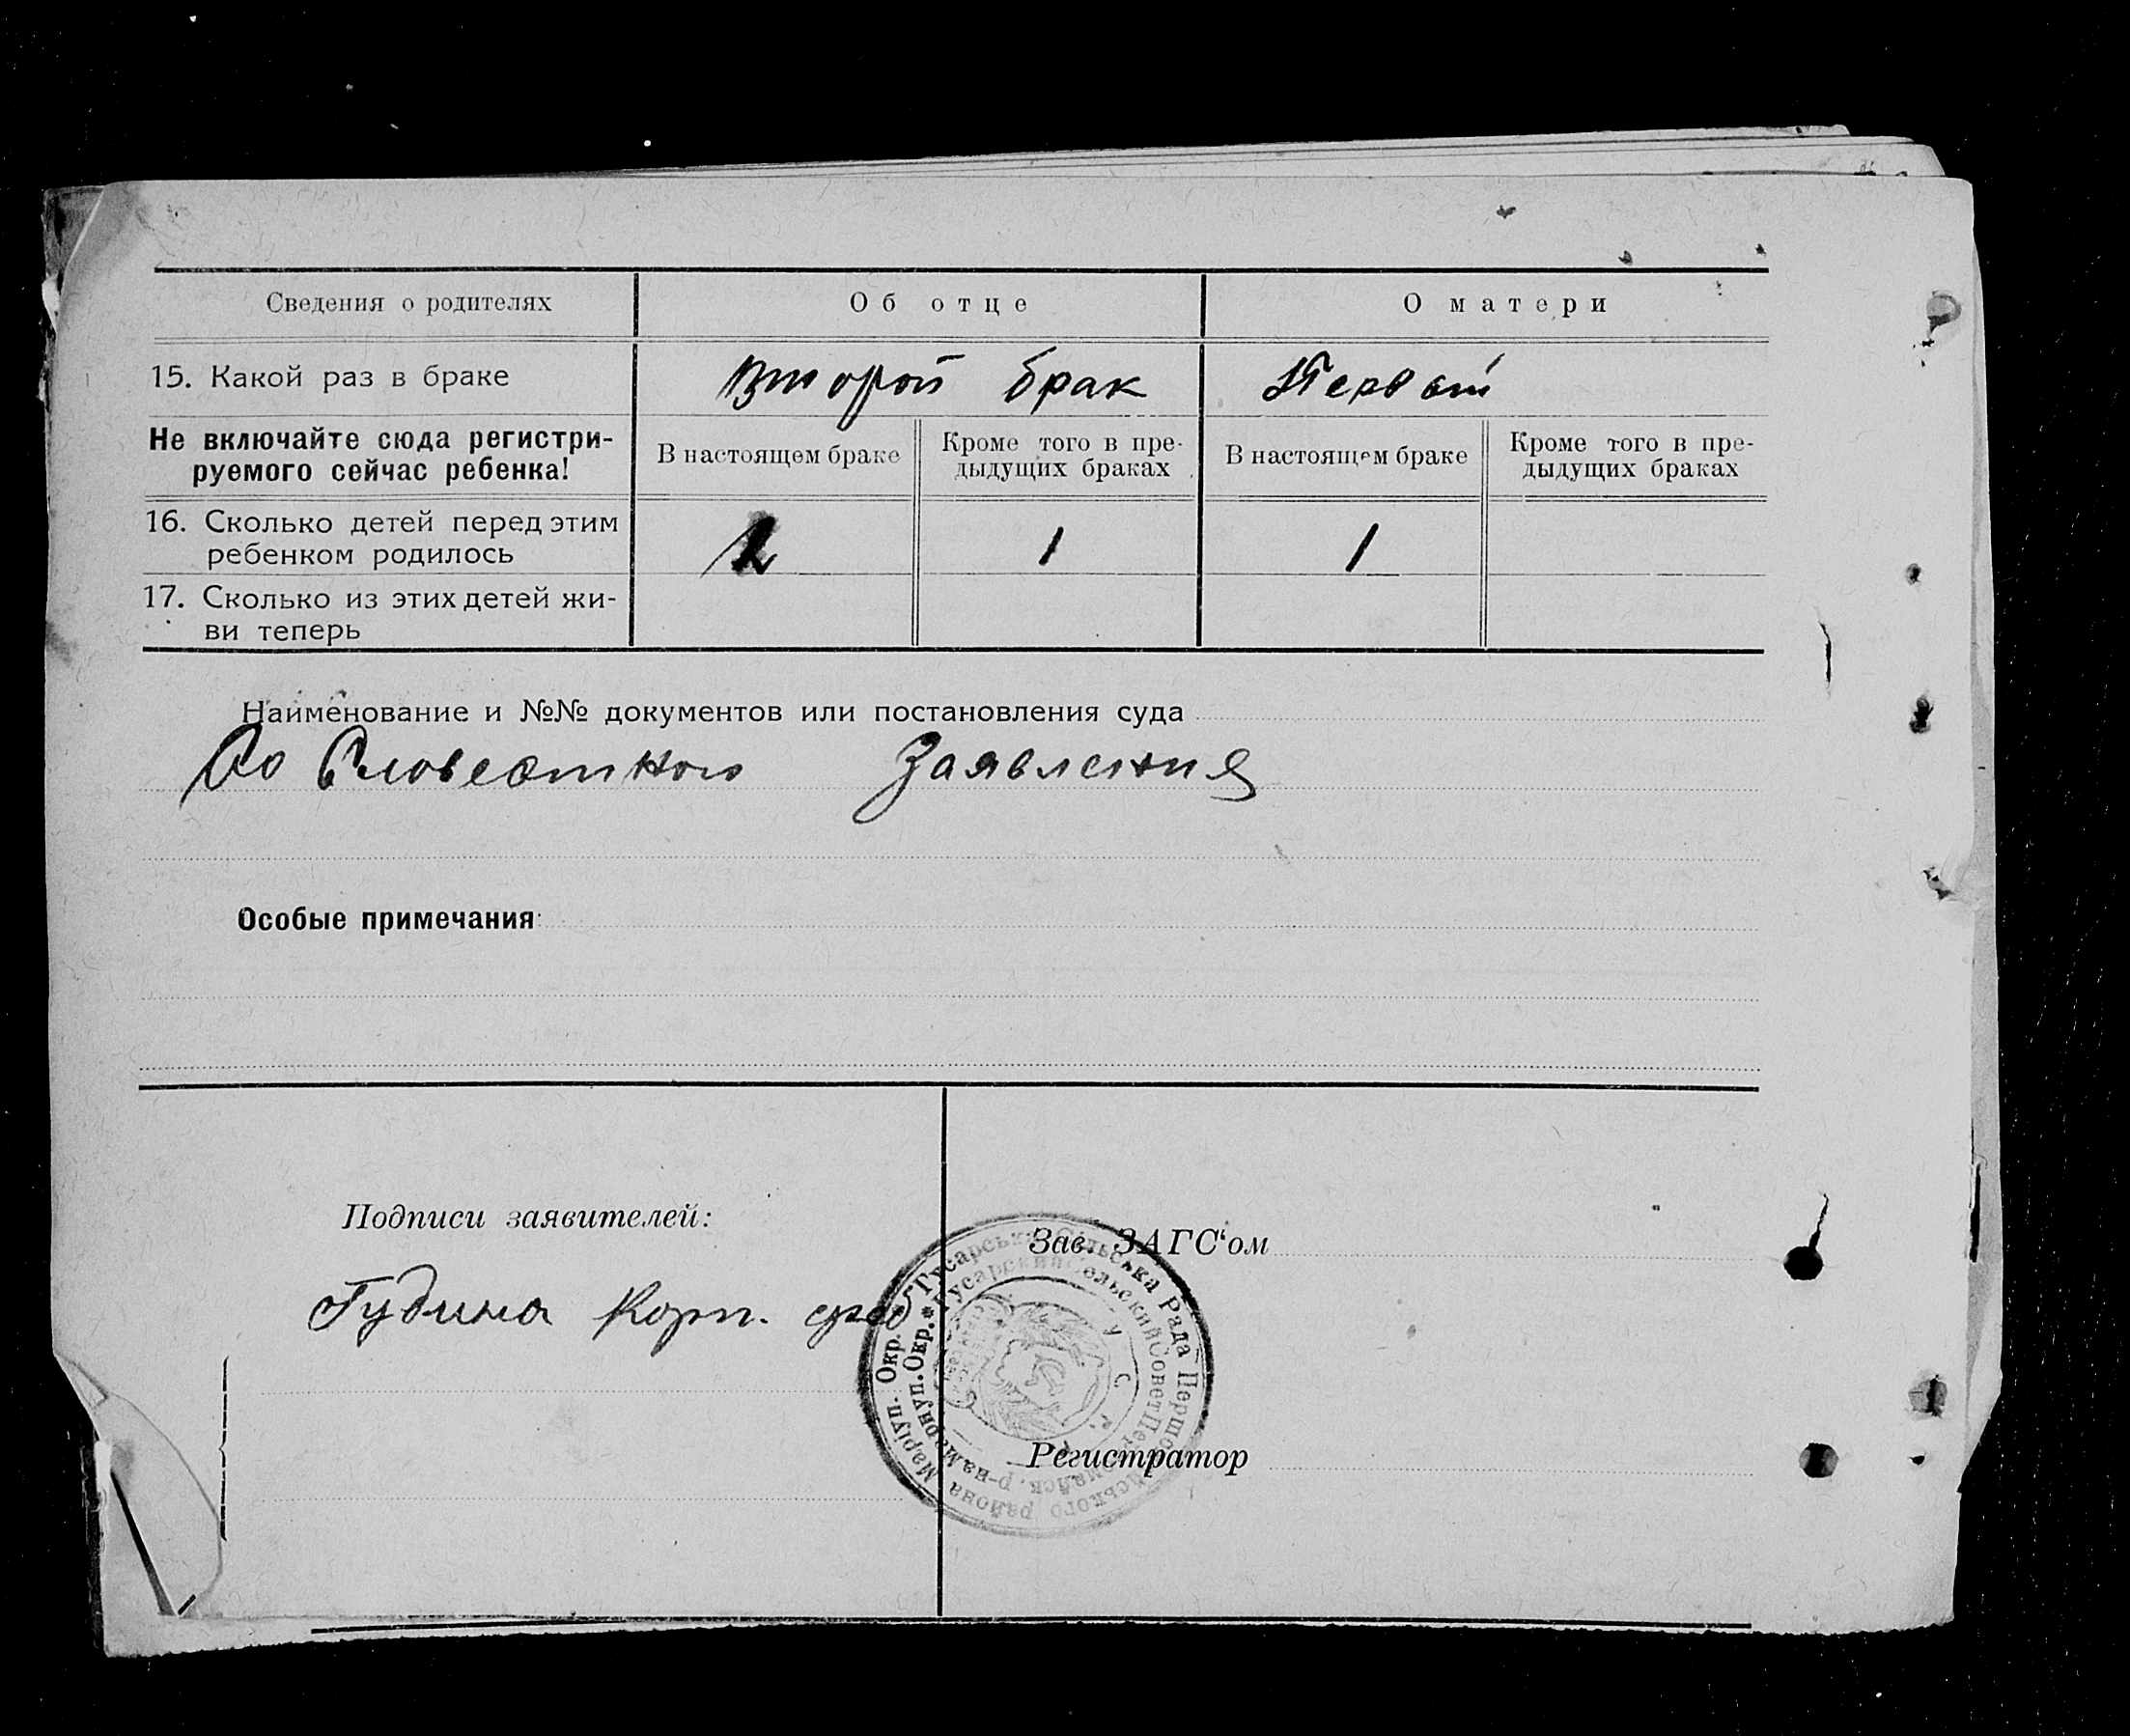 Сведения о родителях
Об отце
О матери
15. Какой раз в браке
второй брак
Первый
Не включайте сюда регистри-
руемого сейчас ребенка!
В настоящем браке
Кроме того в пре-
дыдущих браках
В настоящем браке
Кроме того в пре-
дыдущих браках
16. Сколько детей перед этим
ребенком родилось
1
1
17. Сколько из этих детей жи-
ви теперь
Наименование и №№ документов или постановления суда
Со Словестного Заявления
Особые примечания
Подписи заявителей:
Зав. ЗАГС‘ом
Гудина Корп.
Регистратор
Гусарська Сільська Рада Першо ського района Маріуп. Окр.
Гусарский Сельский Совет Пер майск. р-на Мариуп. Окр.